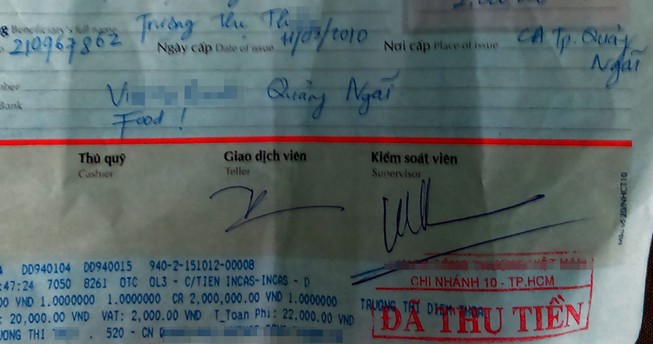 Beneficiary's full name Trương Thị Th
210967862 Ngày cấp Date of issue 11/03/2010 Nơi cấp Place of issue CA Tp. Quảng Ngãi
Bank Quảng Ngãi
Food !
Thủ quỹ Giao dịch viên Kiểm soát viên
Cashier Teller Supervisor
DD940104 DD940015 940-2-151012-00008
:47:24 7050 8261 OTC OL3 - C/TIEN INCAS-INCAS - D
CHI NHÁNH 10 - TP.HCM
00 VND 1.0000000 1.0000000 CR 2,000,000.00 VND 1.0000000
: 20,000.00 VND VAT: 2,000.00 VND T_Toan Phi: 22.000.00 VND
ĐÃ THU TIỀN
UONG THI . 520 - CN